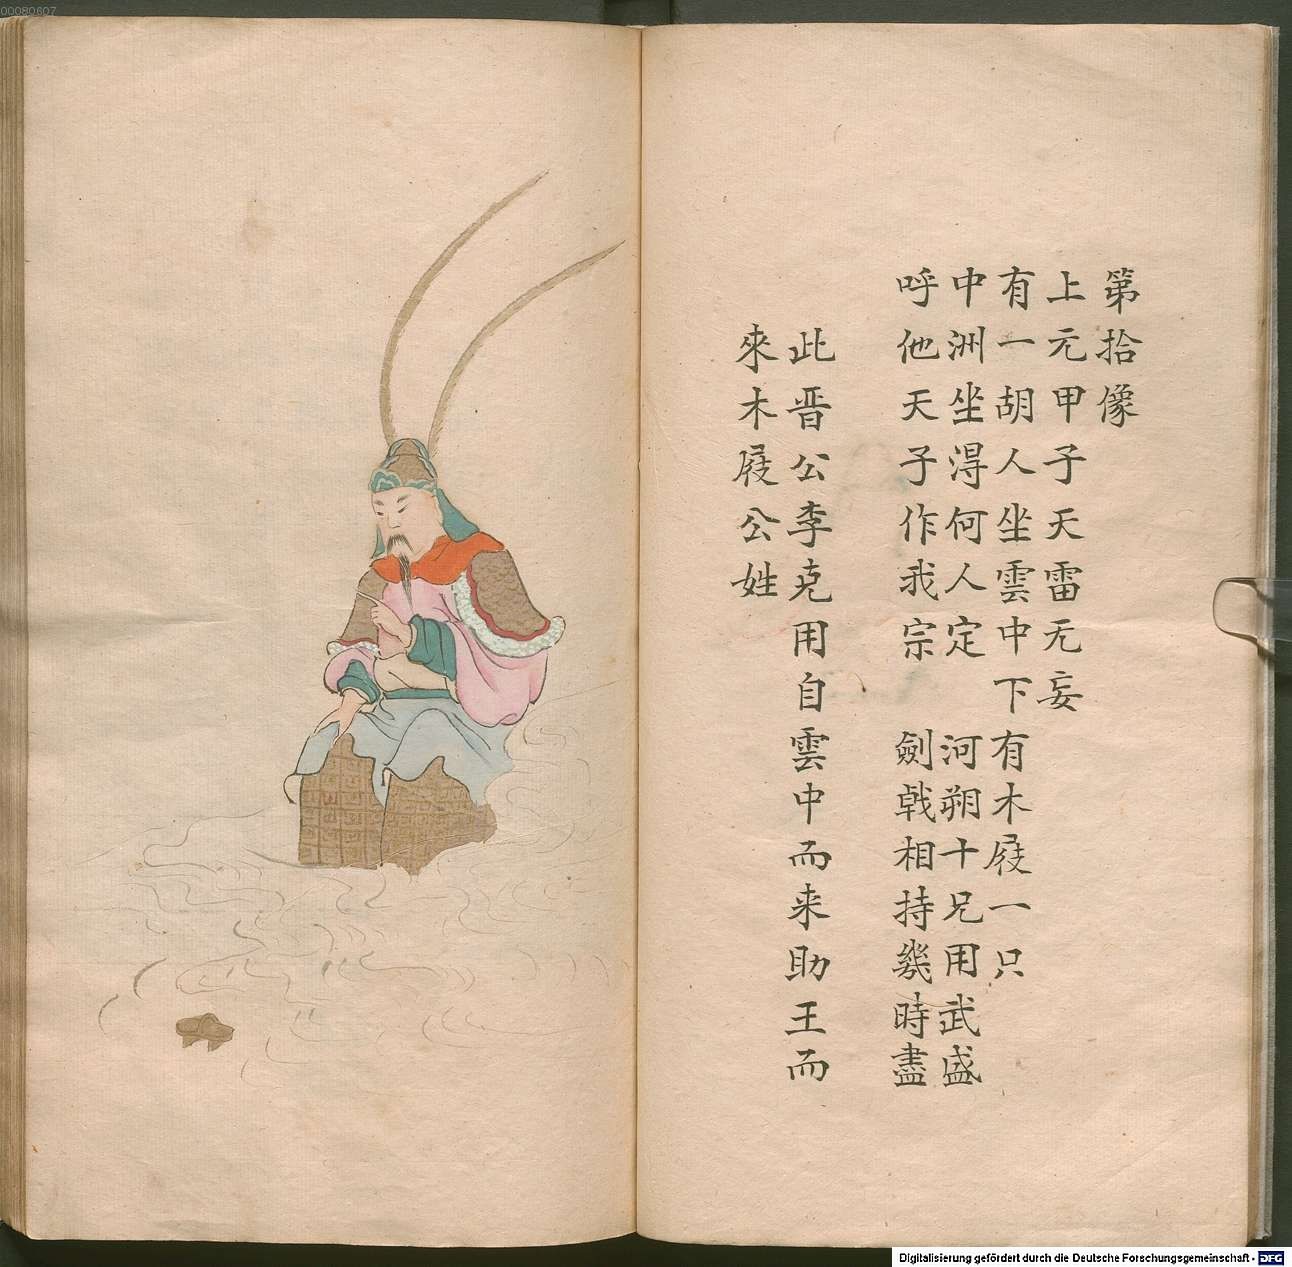 00080607
第拾像
上元甲子天雷无妄
有一胡人坐雲中下有木屐一只
中洲坐淂何人定　河朔十兄用武盛
呼他天子作我宗　劍戟相持幾時盡
此晋公李克用自雲中而来助王而
來木屐公姓
Digitalisierung gefördert durch die Deutsche Forschungsgemeinschaft - DFG